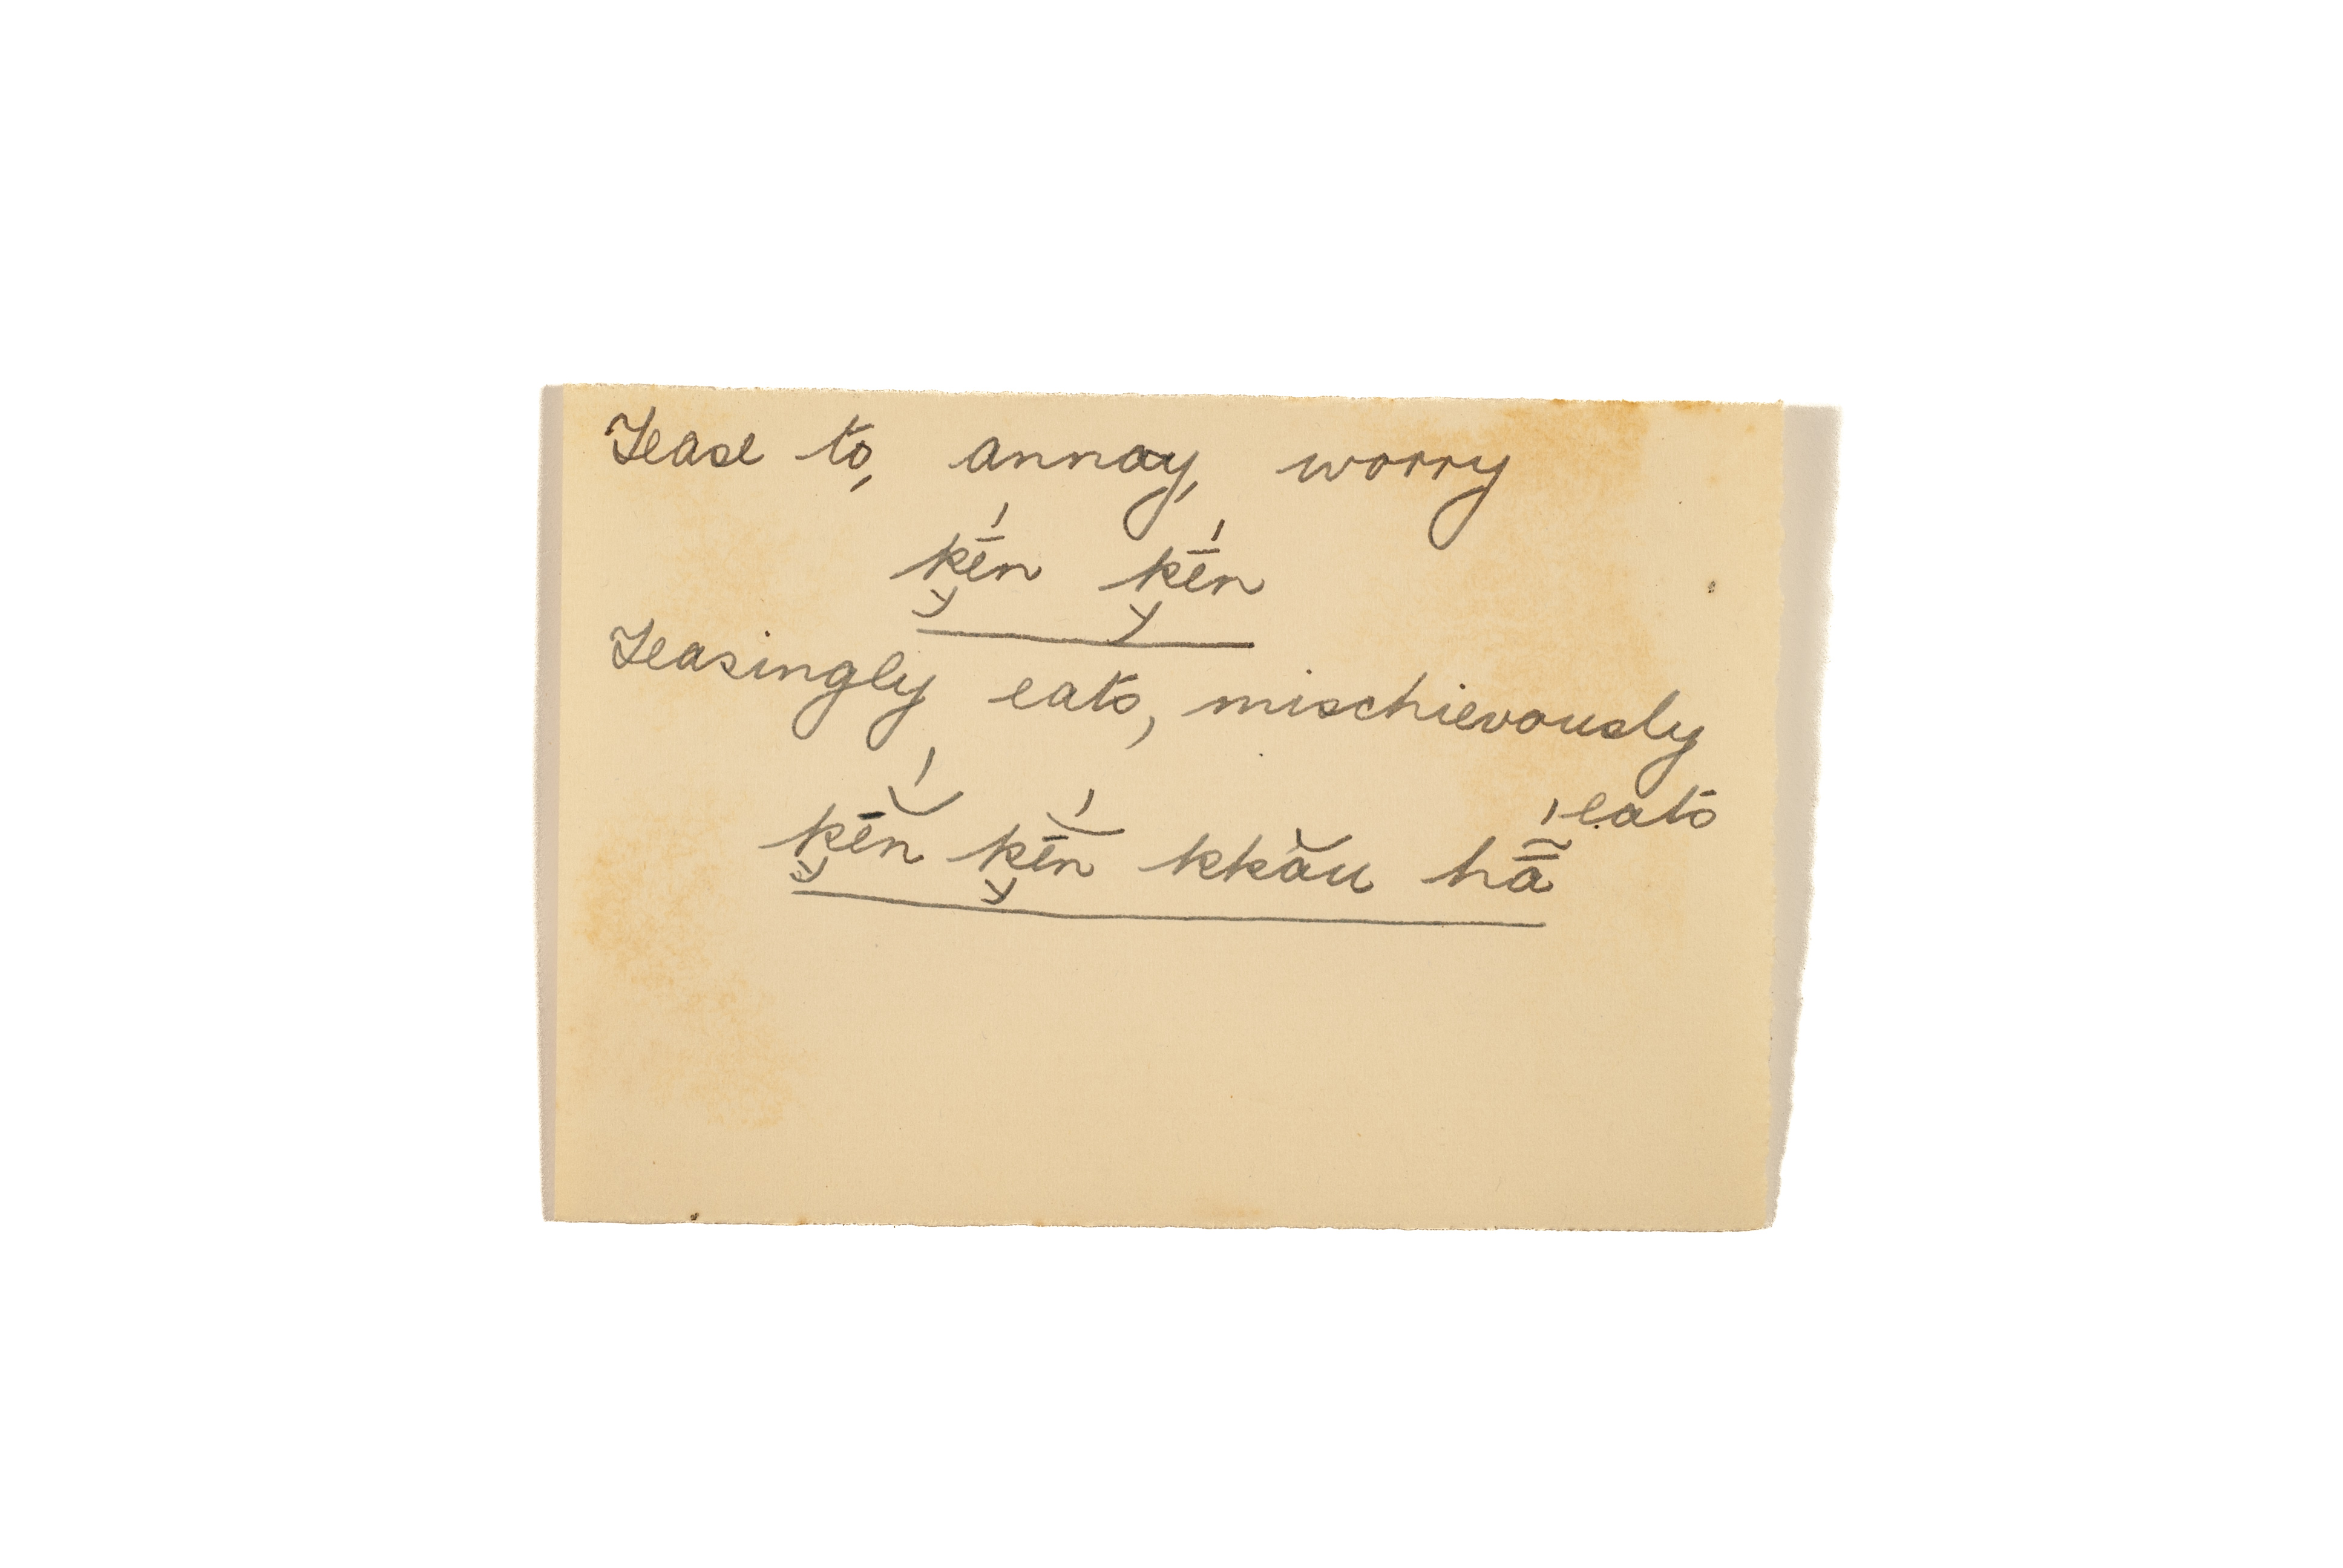 Tease to, annoy, worry
k̬ḗn k̬ḗn
Teasingly eats, mischievously
eats
k̬ē̆́n k̬ē̆́n kkău hā̃́